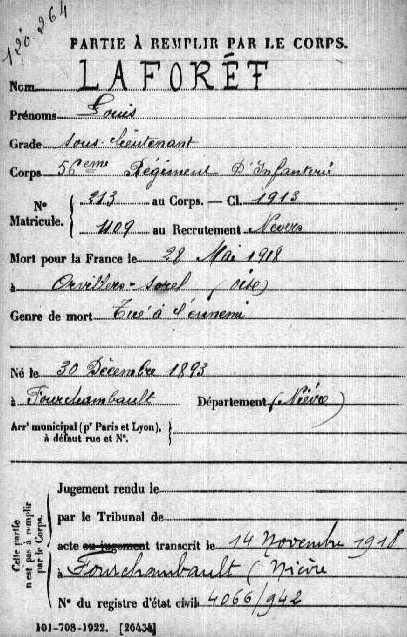 120 264
PARTIE À REMPLIR PAR LE CORPS.
Nom LAFORÊT
Prénoms Louis
Grade sous-lieutenant
Corps 56eme Régiment D'Infanterie
N° Matricule. { 213 au Corps. — Cl. 1913
1109 au Recrutement Nevers
Mort pour la France le 28 Mai 1918
à Orvillers-Sorel (Oise)
Genre de mort Tué à l'ennemi
Né le 30 Décembre 1893
à Fourchambault Département (Nièvre)
Arrt municipal (pr Paris et Lyon),
à défaut rue et N°.
Cette partie n'est pas à remplir par le Corps.
Jugement rendu le
par le Tribunal de
acte ou jugement transcrit le 14 Novembre 1918
à Fourchambault (Nièvre
N° du registre d'état civil 4066/942
101-708-1922. [26434]